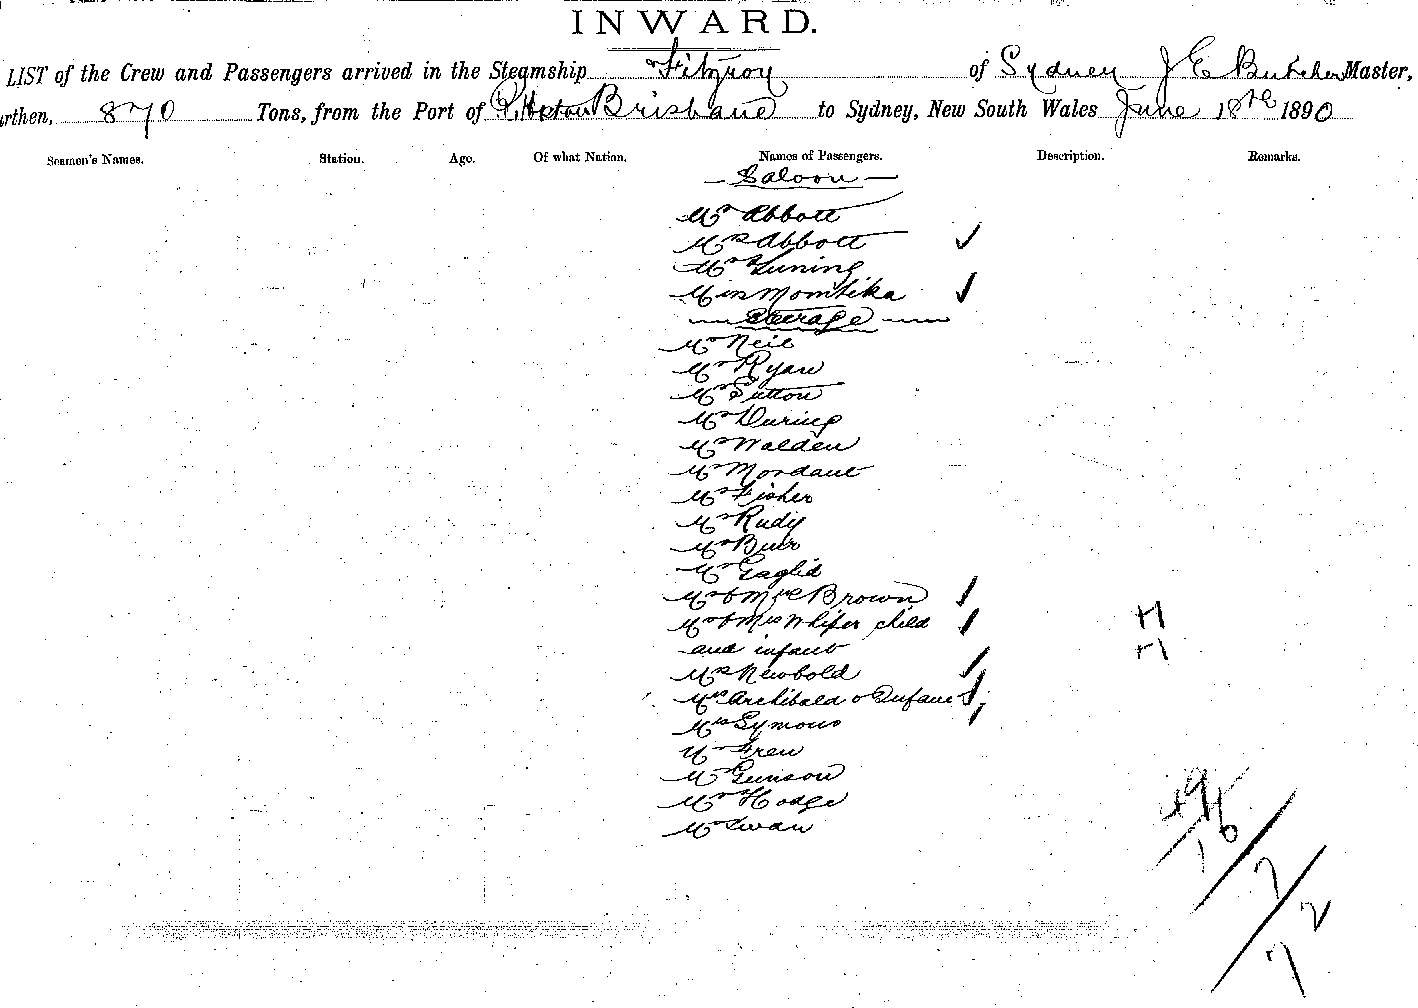 INWARD.
LIST of the Crew and Passengers arrived in the Steamship Fitzroy of Sydney J E Butcher Master,
rthen, 870 Tons, from the Port of Brisbane to Sydney, New South Wales June 18th 1890
Seamen's Names. Station. Age. Of what Nation. Names of Passengers. Description. Remarks.
Saloon
Mr Abbott
Mrs Abbott
Mr
Miss
Steerage
Mr Neil
Mr Ryan
Mr Sutton
Mr During
Mr Walden
Mr Mordaut
Mr Fisher
Mr Rudy
Mr Burr
Mr
Mr & Mrs Brown
Mr & Mrs child
and infant
Mrs Newbold
Mrs Archibald & Infant
Mrs Symons
Mr Frew
Mr Gunson
Mr Hodge
Mr Swan